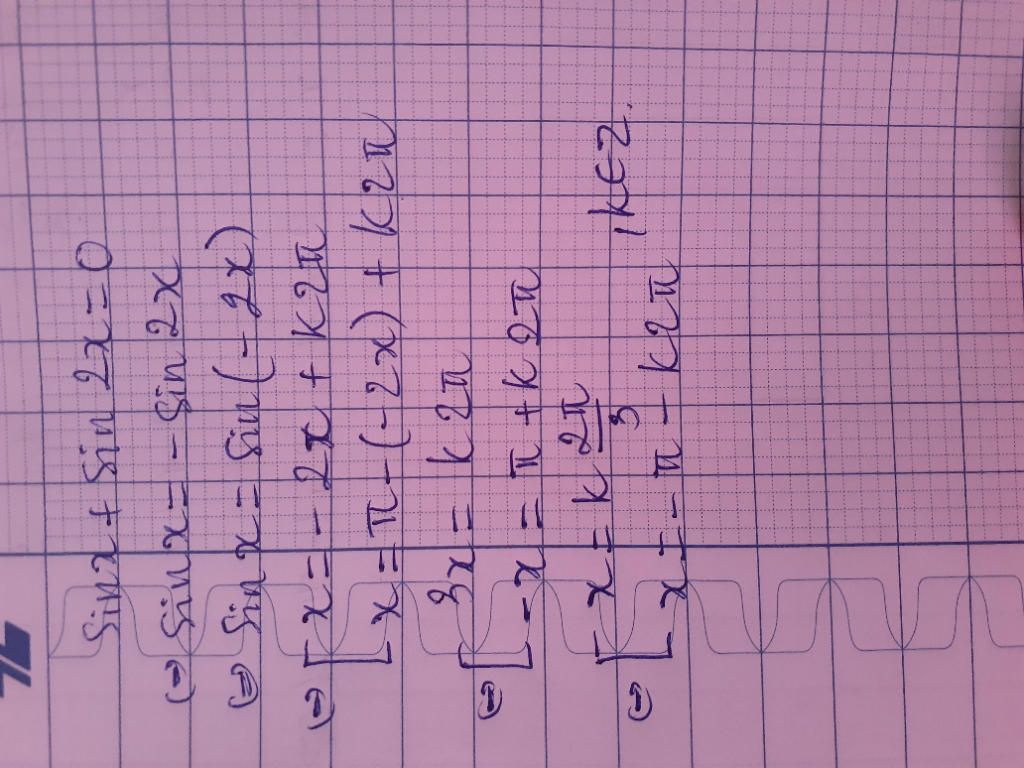 sin x + sin 2x = 0
⇔ sin x = - sin 2x
⇔ sin x = sin (- 2x)
⇔ [ x = - 2x + k2π
x = π - (-2x) + k2π
⇔ [ 3x = k2π
-x = π + k2π
⇔ [ x = k 2π/3
x = - π - k2π , k ∈ Z.